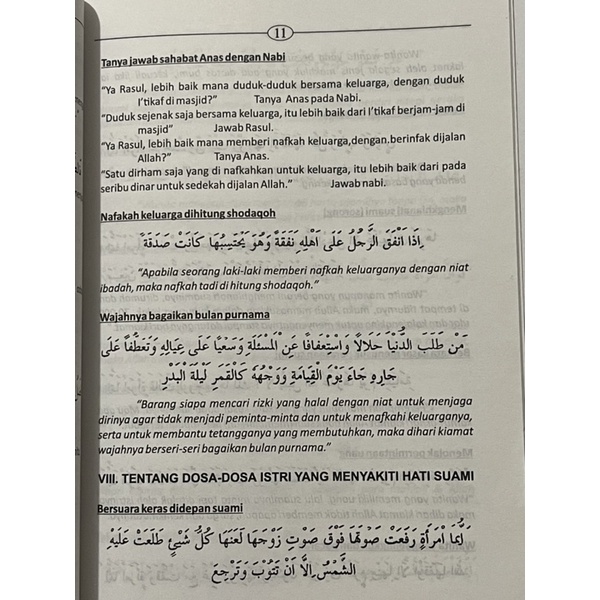 11
Tanya jawab sahabat Anas dengan Nabi
"Ya Rasul, lebih baik mana duduk-duduk bersama keluarga, dengan duduk
I'tikaf di masjid?" Tanya Anas pada Nabi.
"Duduk sejenak saja bersama keluarga, itu lebih baik dari I'tikaf berjam-jam di
masjid" Jawab Rasul.
"Ya Rasul, lebih baik mana memberi nafkah keluarga,dengan.berinfak dijalan
Allah?" Tanya Anas.
"Satu dirham saja yang di nafkahkan untuk keluarga, itu lebih baik dari pada
seribu dinar untuk sedekah dijalan Allah." Jawab nabi.
Nafakah keluarga dihitung shodaqoh
اِذَا انْفَقَ الرَّجُلُ عَلَى اَهْلِهِ نَفَقَةً وَهُوَ يَحْتَسِبُهَا كَانَتْ صَدَقَةً
"Apabila seorang laki-laki memberi nafkah keluarganya dengan niat
ibadah, maka nafkah tadi di hitung shodaqoh."
Wajahnya bagaikan bulan purnama
مَنْ طَلَبَ الدُّنْيَا حَلَالًا وَاسْتِعْفَافًا عَنِ الْمَسْئَلَةِ وَسَعْيًا عَلَى عِيَالِهِ وَتَعَطُّفًا عَلَى
جَارِهِ جَاءَ يَوْمَ الْقِيَامَةِ وَوَجْهُهُ كَالْقَمَرِ لَيْلَةَ الْبَدْرِ
"Barang siapa mencari rizki yang halal dengan niat untuk menjaga
dirinya agar tidak menjadi peminta-minta dan untuk menafkahi keluarganya,
serta untuk membantu tetangganya yang membutuhkan, maka dihari kiamat
wajahnya berseri-seri bagaikan bulan purnama."
VIII. TENTANG DOSA-DOSA ISTRI YANG MENYAKITI HATI SUAMI
Bersuara keras didepan suami
اَيُّمَا امْرَأَةٍ رَفَعَتْ صَوْتَهَا فَوْقَ صَوْتِ زَوْجِهَا لَعَنَهَا كُلُّ شَيْئٍ طَلَعَتْ عَلَيْهِ
الشَّمْسُ اِلَّا اَنْ تَتُوْبَ وَتَرْجِعَ